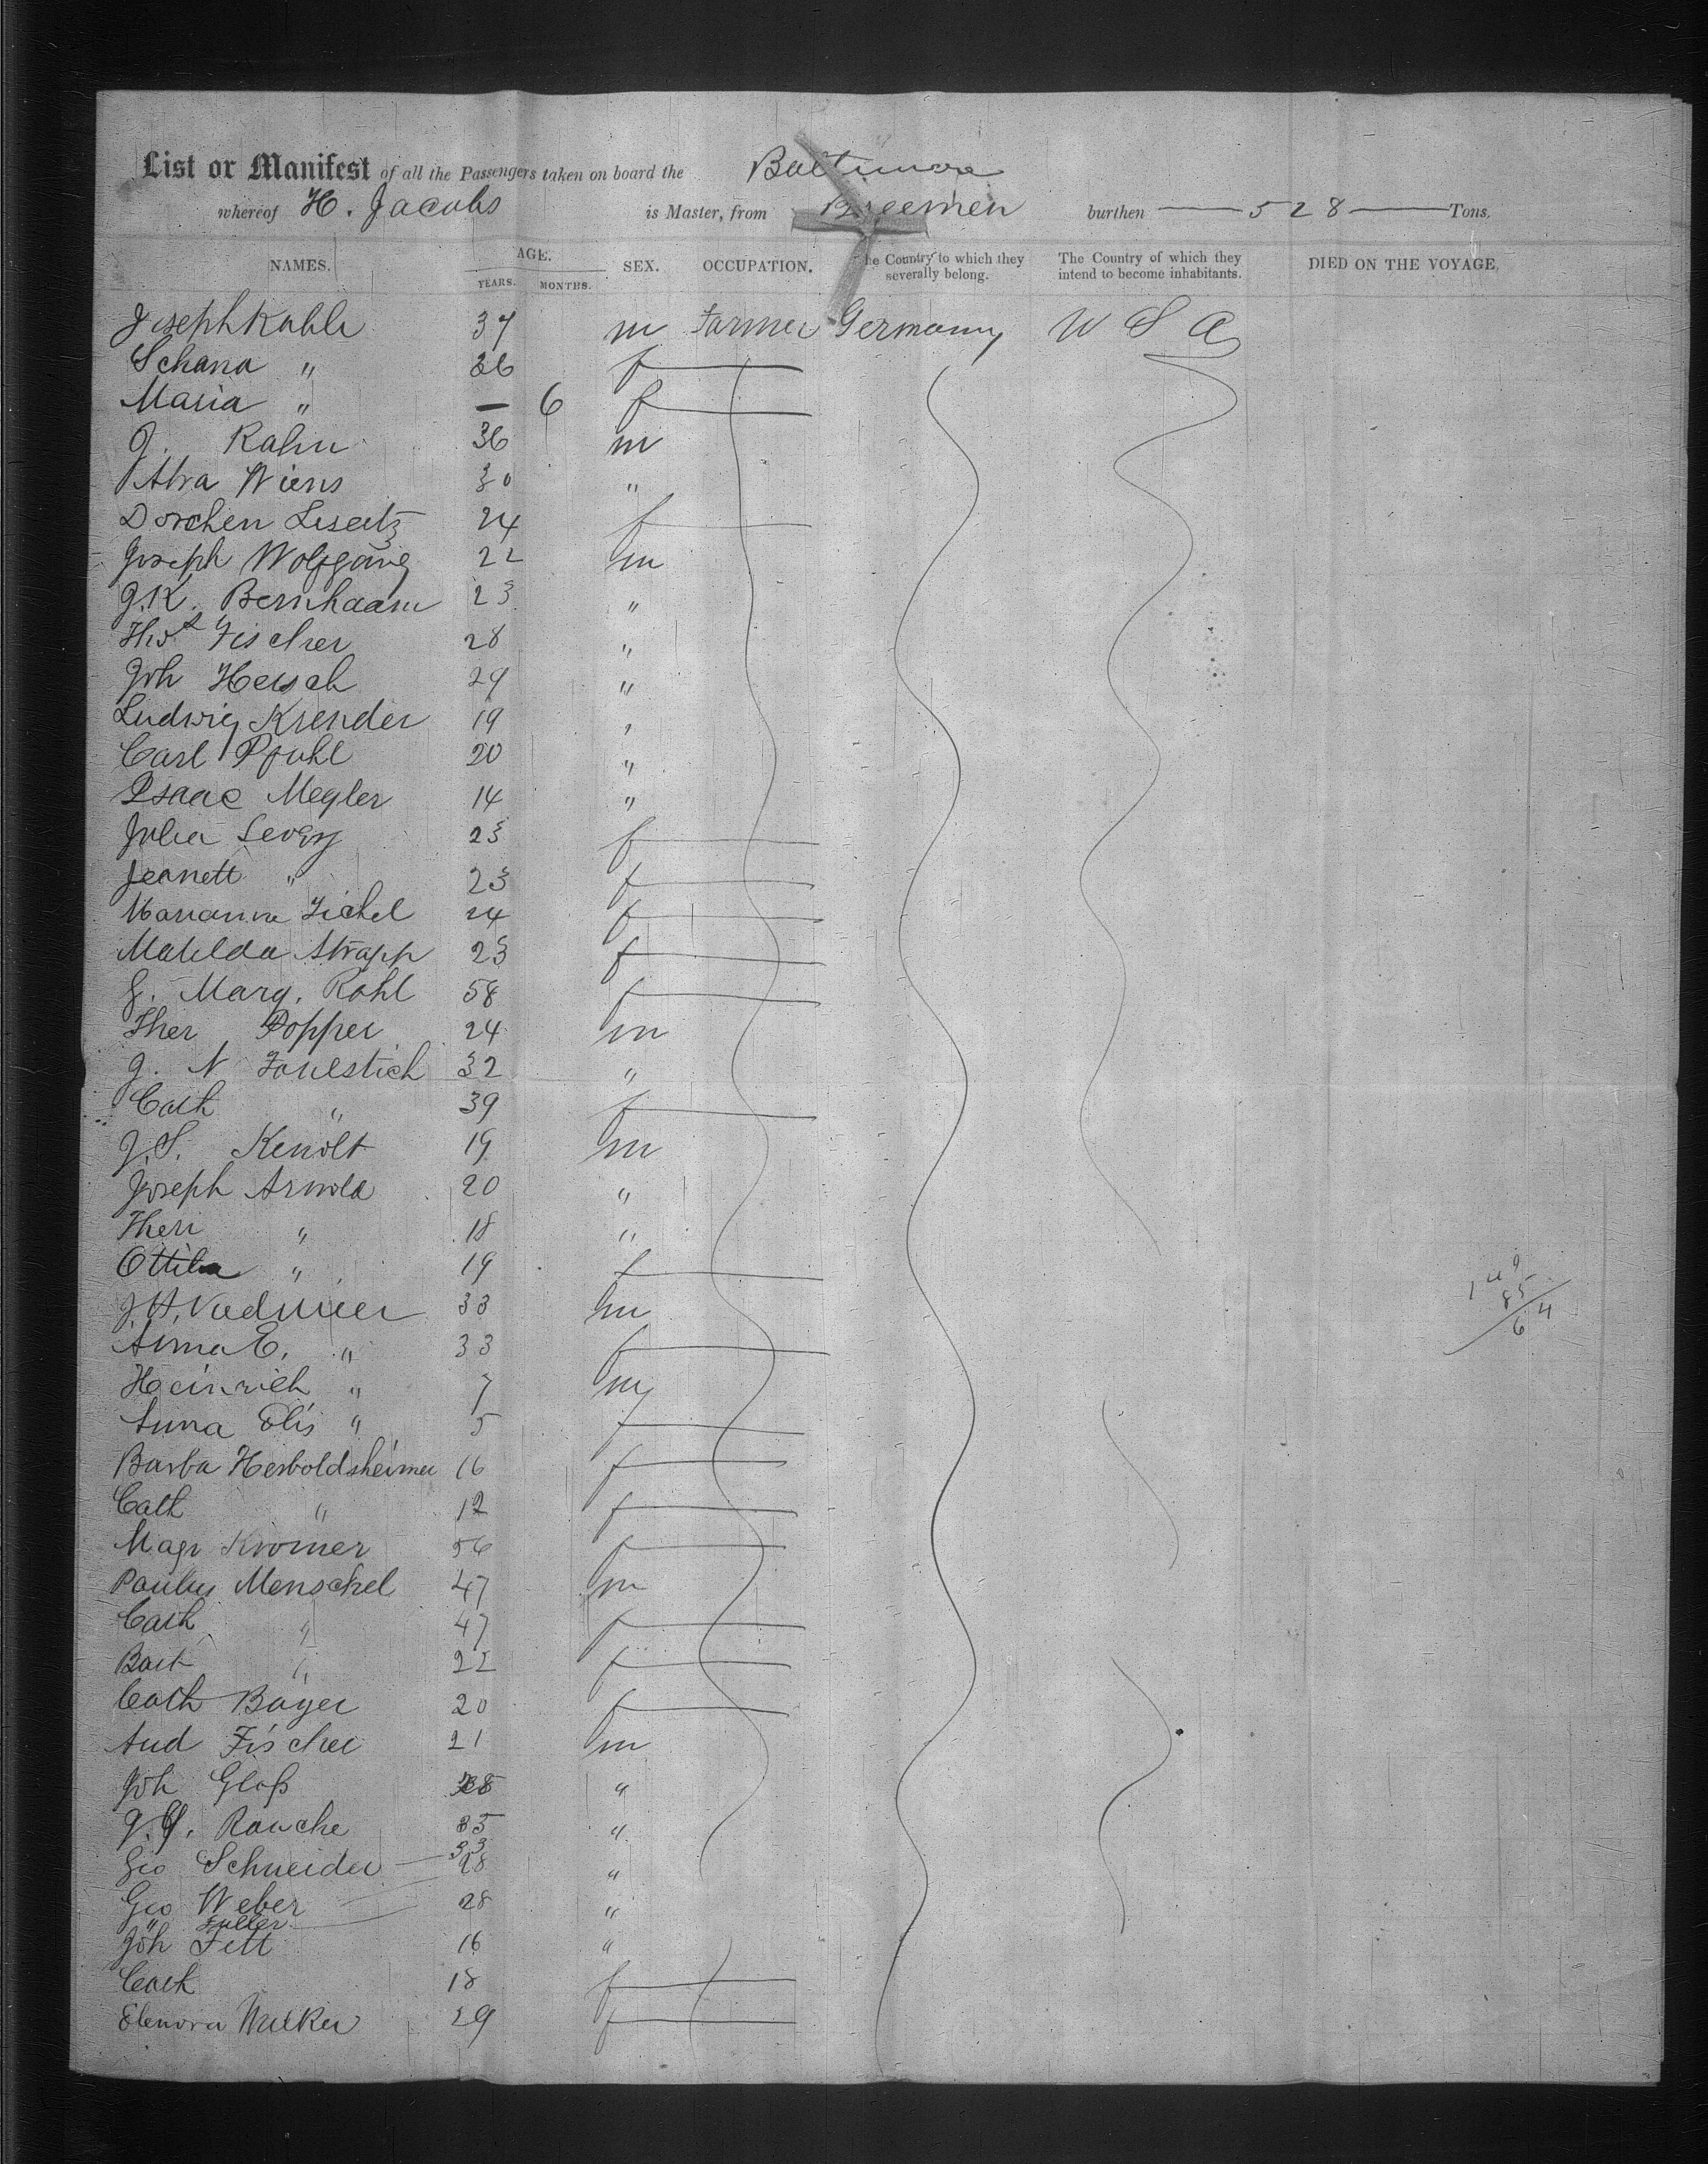 List or Manifest of all the Passengers taken on board the Baltimore
whereof H. Jacobs is Master, from Breemen burthen — 528 — Tons.
NAMES. AGE. SEX. OCCUPATION. he Country to which they severally belong. The Country of which they intend to become inhabitants. DIED ON THE VOYAGE,
YEARS. MONTHS.
Joseph Kahle 37 m Farmer Germany U S A
Schana " 26 f
Maria " — 6 f
J. Kahn 36 m
Abra Wiens 30 "
Dorchen Liseitz 24 f
Joseph Wolfgang 22 m
J.K. Bernhaam 23 "
Thos Fischer 28 "
Joh Hersch 29 "
Ludwig Krender 19 "
Carl Pfuhl 20 "
Isaac Megler 14 "
Julia Levey 23 f
Jeanett " 23 f
Marianna Fichel 24 f
Matilda Strapp 23 f
Marg. Rohl 58 f
Ther Popper 24 m
J. N Faulstich 32 "
Cath " 39 f
J.S. Kenolt 19 m
Joseph Arnold 20 "
Theri " 18 "
Ottila " 19 f
J.H. 33 m
Anna E. " 33 f
Heinrich " 7 m
Anna Elis " 5 f
Barba Herboldsheimer 16 f
Cath " 12 f
Magr Kromer 56 f
Pauly Menschel 47 m
Cath " 47 f
Barb " 22 f
Cath Bayer 20 f
And Fischer 21 m
Joh Gloß 28 "
Rauche 35 "
33
Geo Schneider — 28 "
Geo Weber 28 "
" Fuller
Joh Fett 16 "
Cath 18 f
Elenora Walker 29 f
149
85
64